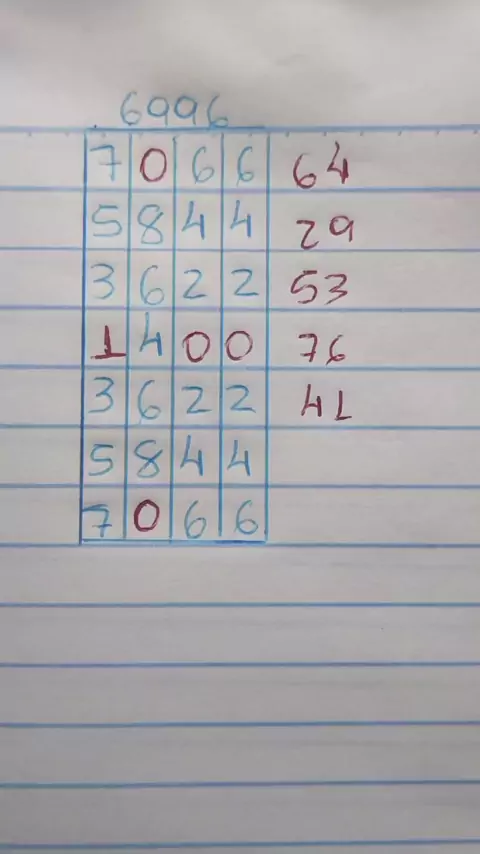 6996
7 0 6 6 64
5 8 4 4 29
3 6 2 2 53
1 4 0 0 76
3 6 2 2 41
5 8 4 4
7 0 6 6